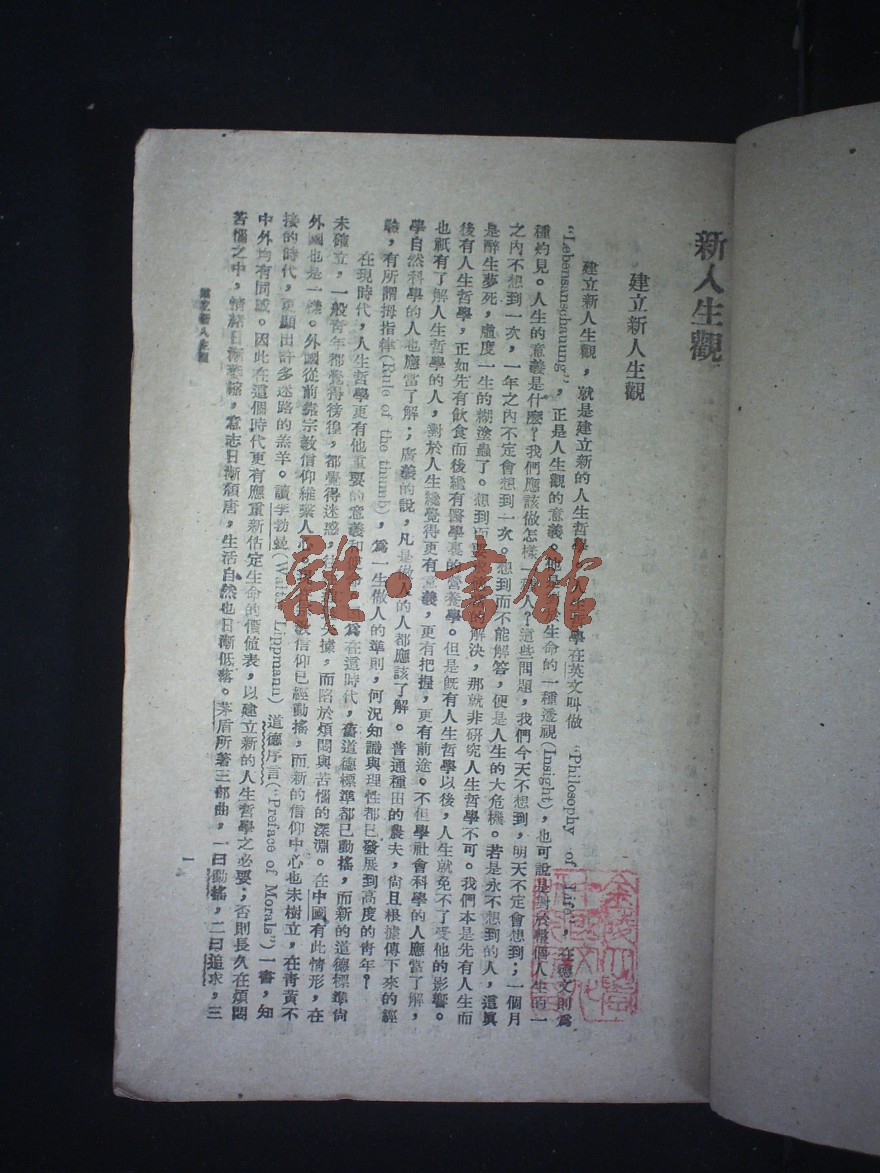 新人生觀
建立新人生觀
建立新人生觀，就是建立新的人生哲學。人生哲學在英文叫做 “Philosophy of Life”，在德文則為
“Lebensansghauung”，正是人生觀的意義。他是對於生命的一種透視(Insight)，也可說是對於整個人生的一
種灼見。人生的意義是什麼？我們應該做怎樣一種人？這些問題，我們今天不想到，明天不定會想到；一個月
之內不想到一次，一年之內不定會想到一次。想到而不能解答，便是人生的大危機。若是永不想到的人，這眞
是醉生夢死，虛度一生的糊塗蟲了。想到而要求的解決，那就非研究人生哲學不可。我們本是先有人生而
後有人生哲學，正如先有飲食而後纔有醫學裏的營養學。但是既有人生哲學以後，人生就免不了受他的影響。
也祇有了解人生哲學的人，對於人生纔覺得更有意義，更有把握，更有前途。不但學社會科學的人應當了解，
學自然科學的人也應當了解；廣義的說，凡是做人的人都應該了解。普通種田的農夫，尙且根據傳下來的經
驗，有所謂拇指律(Rule of the thumb)，為一生做人的準則，何況知識與理性都已發展到高度的靑年？
在現時代，人生哲學更有他重要的意義和為在這時代，舊道德標準都已動搖，而新的道德標準尙
未確立，一般靑年都覺得徬徨，都覺得迷惑，往據，而陷於煩悶與苦惱的深淵。在中國有此情形，在
外國也是一樣。外國從前靠宗敎信仰維繫人心，信仰已經動搖，而新的信仰中心也未樹立，在靑黃不
接的時代，更顯出許多迷路的羔羊。讀李勃曼(Walter Lippmann) 道德序言(“Preface of Morals”)一書，知
中外均有同感。因此在這個時代更有應重新估定生命的價值表，以建立新的人生哲學之必要；否則長久在煩悶
苦惱之中，情緒日漸萎縮，意志日漸頹唐，生活自然也日漸低落。茅盾所著三部曲，一曰動搖，二曰追求，三
建立新人生觀
1
雜·書館